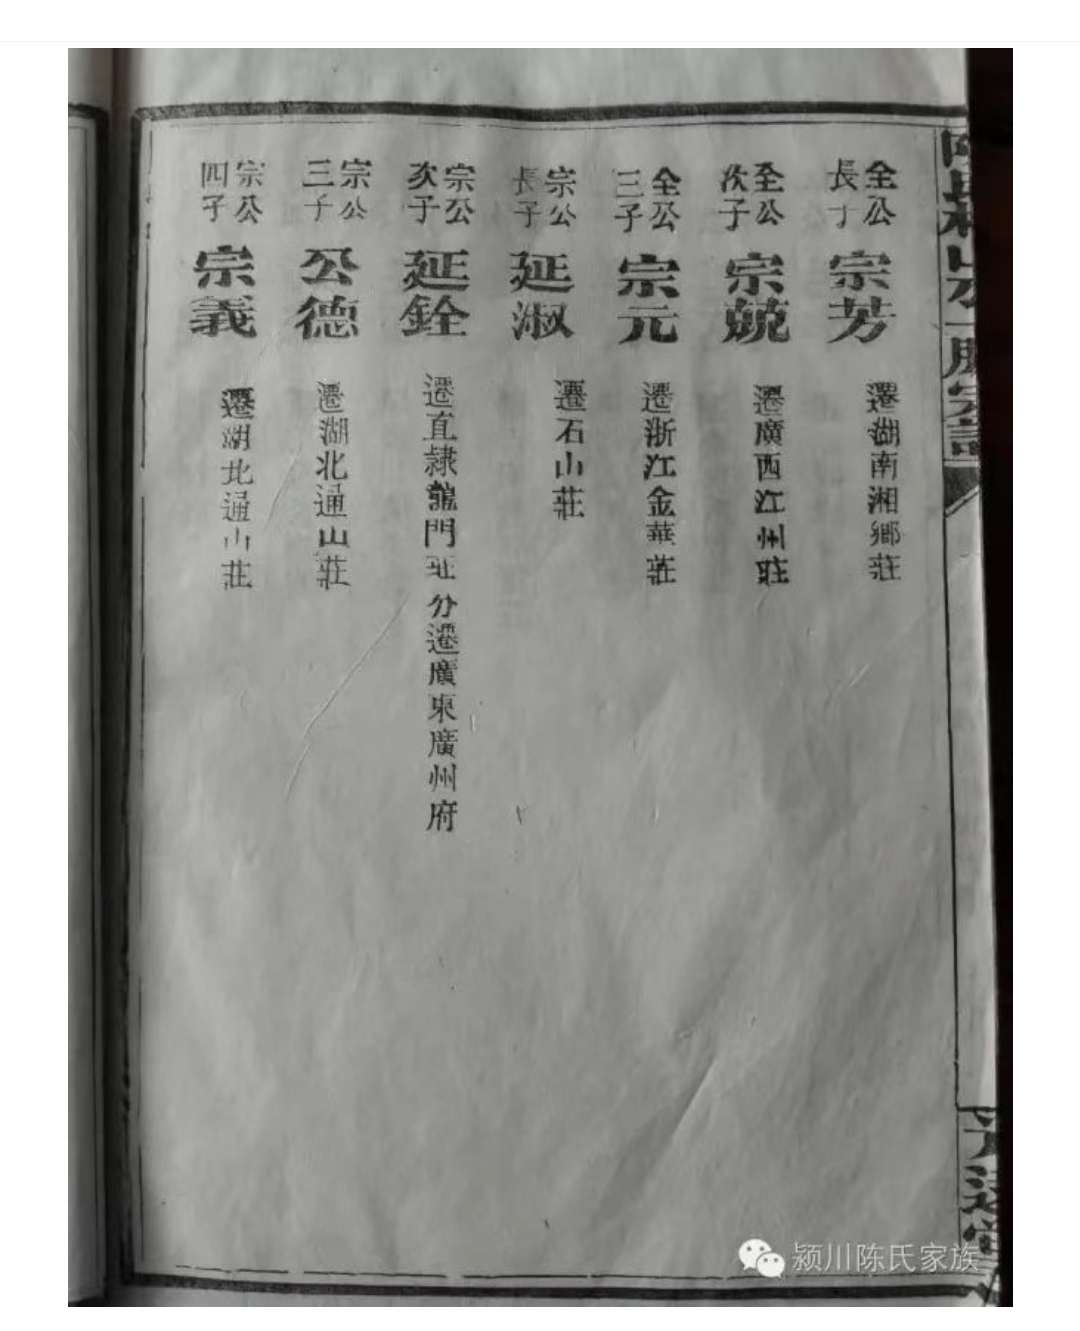 全公長子 宗芳 遷湖南湘鄉莊
全公次子 宗兢 遷廣西江州莊
全公三子 宗元 遷浙江金華莊
宗公長子 延淑 遷石山莊
宗公次子 延銓 遷直隸龍門 分遷廣東廣州府
宗公三子 公德 遷湖北通山莊
宗公四子 宗義 遷湖北通山莊
颍川陈氏家族